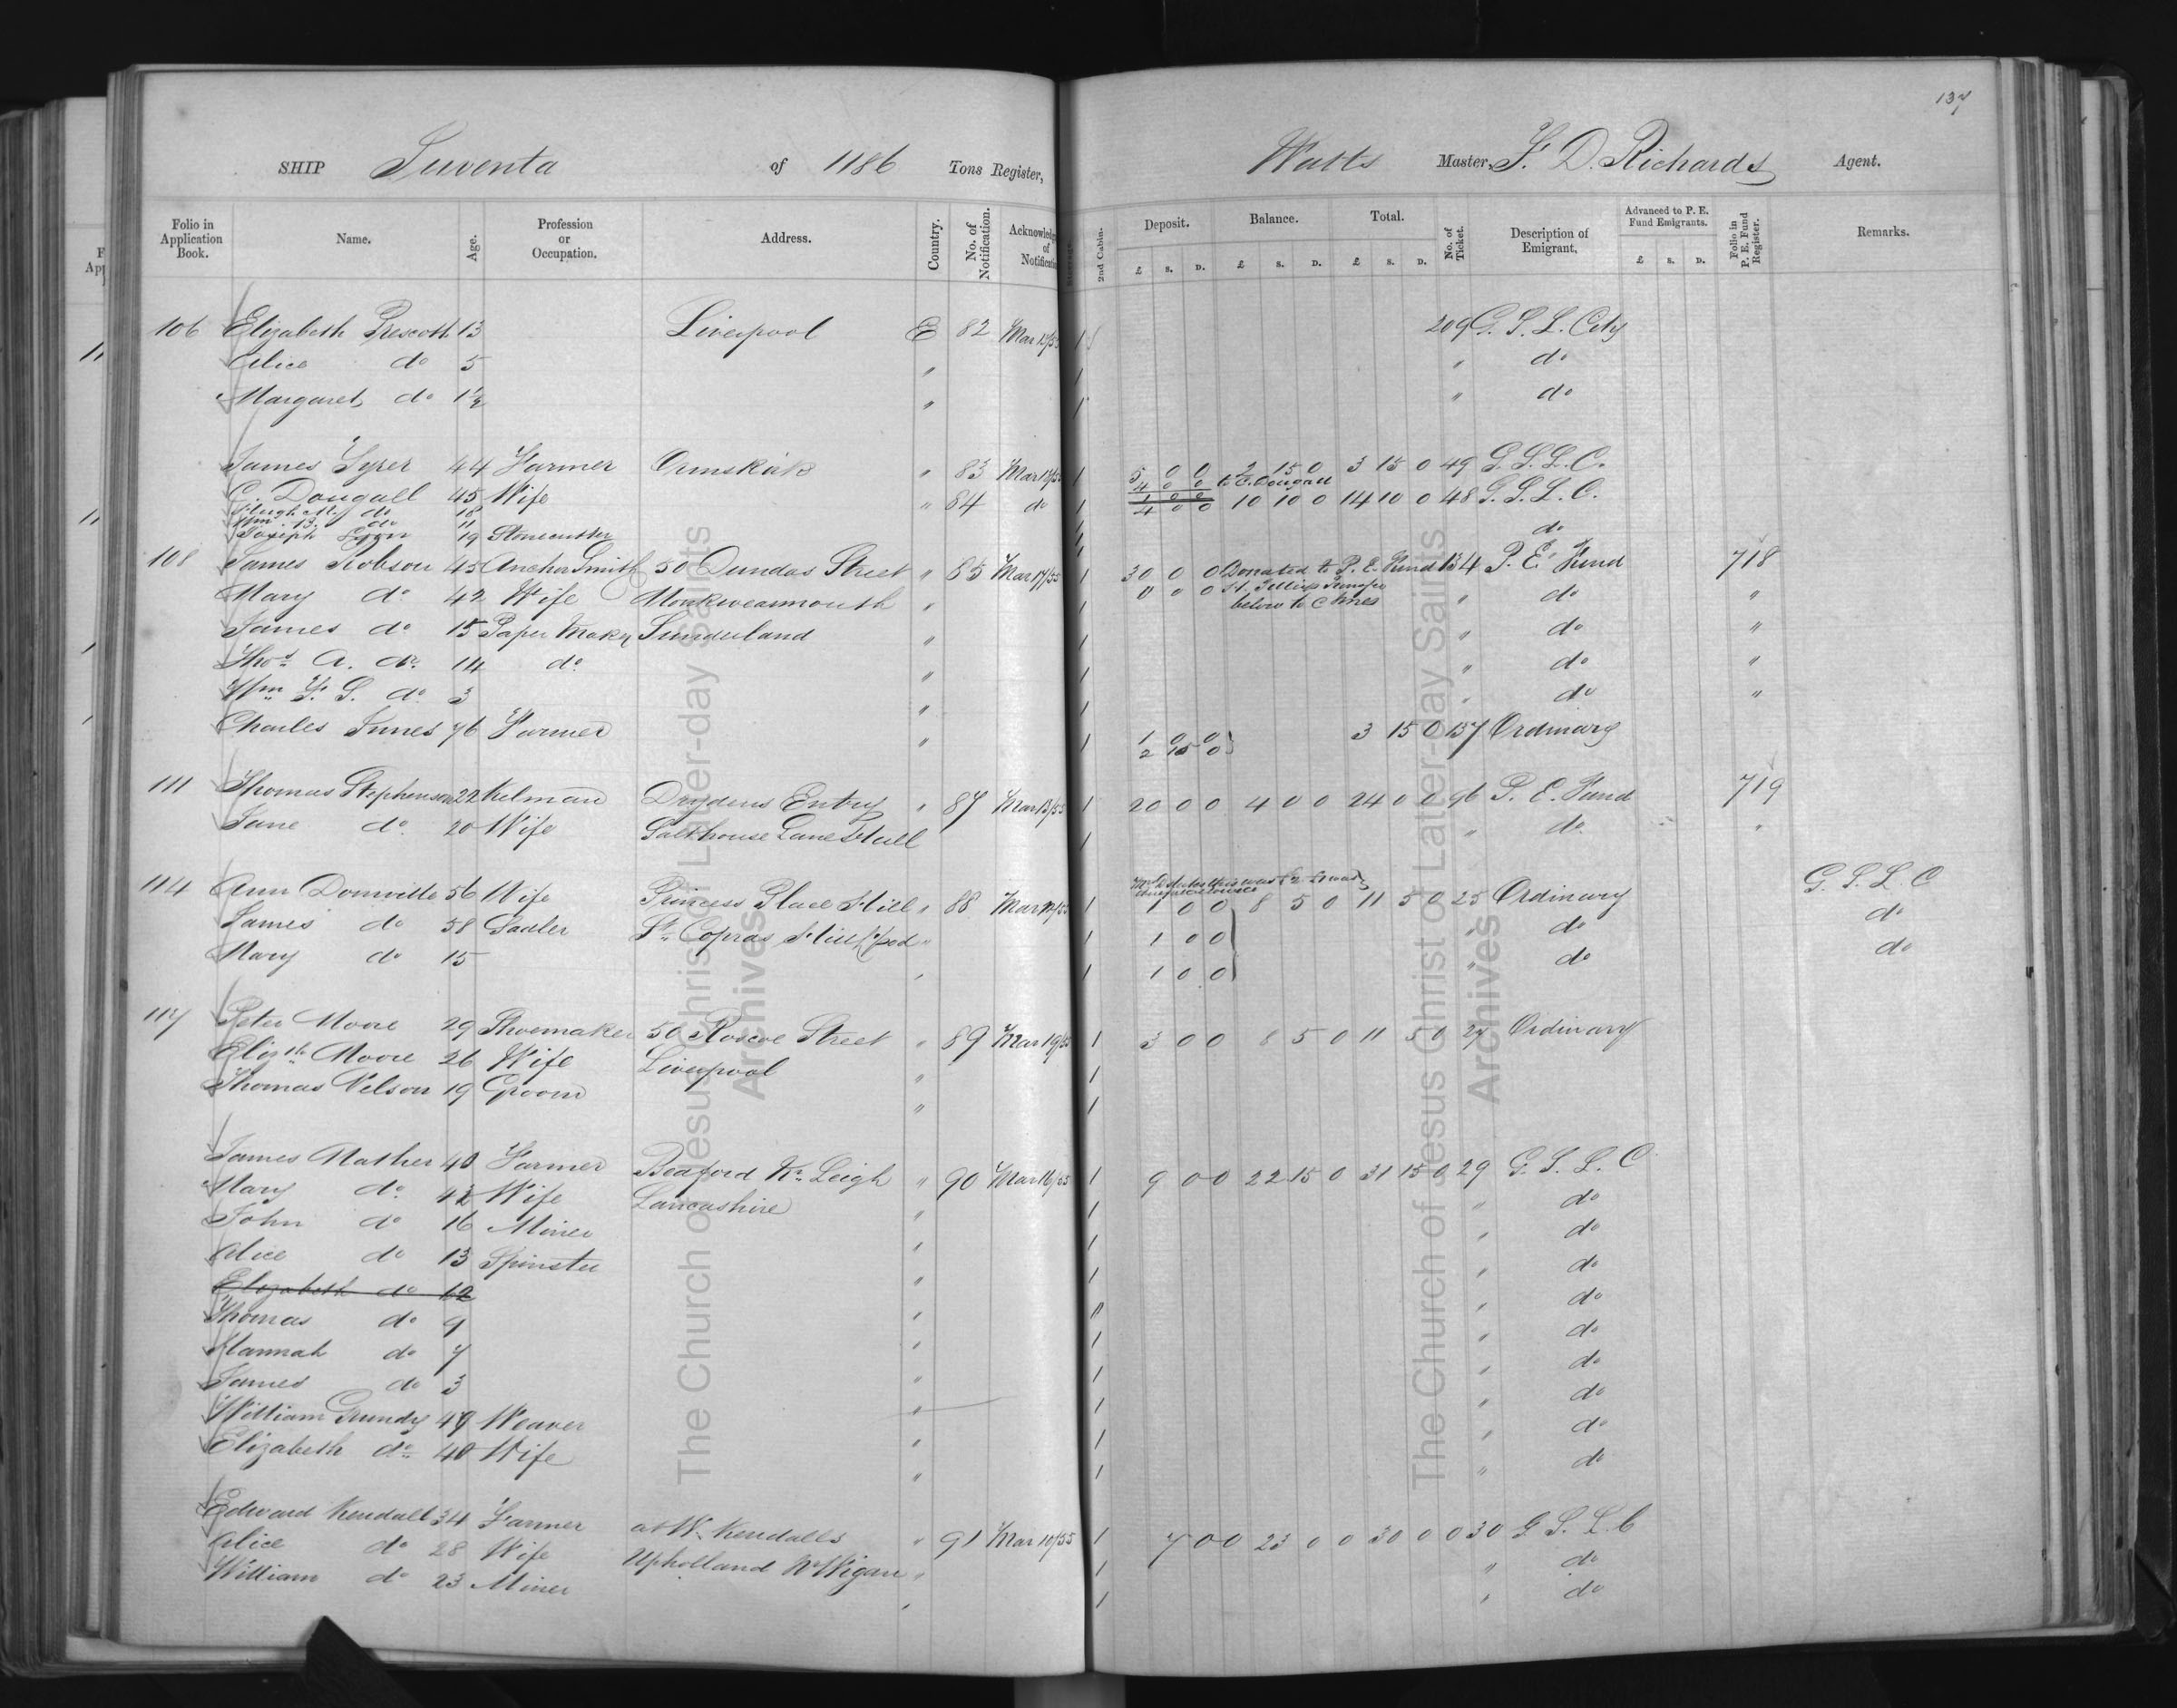 137
SHIP Juventa of 1186 Tons Register, Watts Master, F. D. Richards Agent.
Folio in Application Book. Name. Age. Profession or Occupation. Address. Country. No. of Notification. Acknowledg of Notificatio 2nd Cabin. Deposit. £ s. D. Balance. £ s. D. Total. £ s. D. No. of Ticket. Description of Emigrant, Advanced to P. E. Fund Emigrants. £ s. D. Folio in P. E. Fund Register. Remarks.
106 Elizabeth Prescott 13 Liverpool E 82 Mar 13/55 1 209 G. S. L. City
Alice do 5 " 1 " do
Margaret do 1½ " 1 " do
James Syrer 44 Farmer Ormskirk " 83 Mar 13/55 1 5 0 0 2 15 0 3 15 0 49 G. S. L. C.
4 0 0 to C. Dougall
C. Dougall 45 Wife " 84 do 1 1 0 0 10 10 0 14 10 0 48 G. S. L. C.
4 0 0
do 18
Wm. B. do 11 do
Joseph 19 Stonecutter
108 James Robson 45 Anchor Smith 50 Dundas Street " 85 Mar 17/55 1 30 0 0 Donated to P. E. Fund 134 P. E. Fund 718
Mary do 42 Wife Monkwearmouth " 1 0 0 0 below to C Innes " do "
James do 15 Paper Maker Sunderland " 1 " do "
Thos. A. do 14 do " 1 " do "
Wm F. S. do 3 " 1 " do "
Charles Innes 76 Farmer " 1 1 0 0 3 15 0 137 Ordinary
2 15 0
111 Thomas Stephenson 22 Keelman Drydens Entry " 87 Mar 13/55 1 20 0 0 4 0 0 24 0 0 96 P. E. Fund 719
Jane do 20 Wife Salthouse Lane Hull 1 " do "
114 Ann Domville 56 Wife Princess Place Hill " 88 Mar 12/55 1 1 0 0 8 5 0 11 5 0 25 Ordinary G. S. L. C
James do 58 Sadler St. Copras Hill L'pool " 1 1 0 0 " do do
Mary do 15 " 1 1 0 0 " do do
117 Peter Moore 29 Shoemaker 50 Roscoe Street " 89 Mar 19/55 1 3 0 0 8 5 0 11 5 0 27 Ordinary
Elizth Moore 26 Wife Liverpool " 1
Thomas Nelson 19 Groom " 1
James Mather 40 Farmer Bedford Nr. Leigh " 90 Mar 16/55 1 9 0 0 22 15 0 31 15 0 29 G. S. L. C
Mary do 42 Wife Lancashire " 1 " do
John do 16 Miner " 1 " do
Alice do 13 Spinster " 1 " do
Elizabeth do 12 " " do
Thomas do 9 " 1 " do
Hannah do 7 " 1 " do
James do 3 " 1 " do
William Grundy 49 Weaver " 1 " do
Elizabeth do 40 Wife " 1 " do
Edward Kendall 34 Farmer at W. Kendalls " 91 Mar 10/55 1 7 0 0 23 0 0 30 0 0 30 G S. L. C
Alice do 28 Wife Upholland Nr Wigan " 1 " do
William do 23 Miner " 1 " do
The Church of Jesus Christ of Latter-day Saints
Archives
The Church of Jesus Christ of Latter-day Saints
Archives